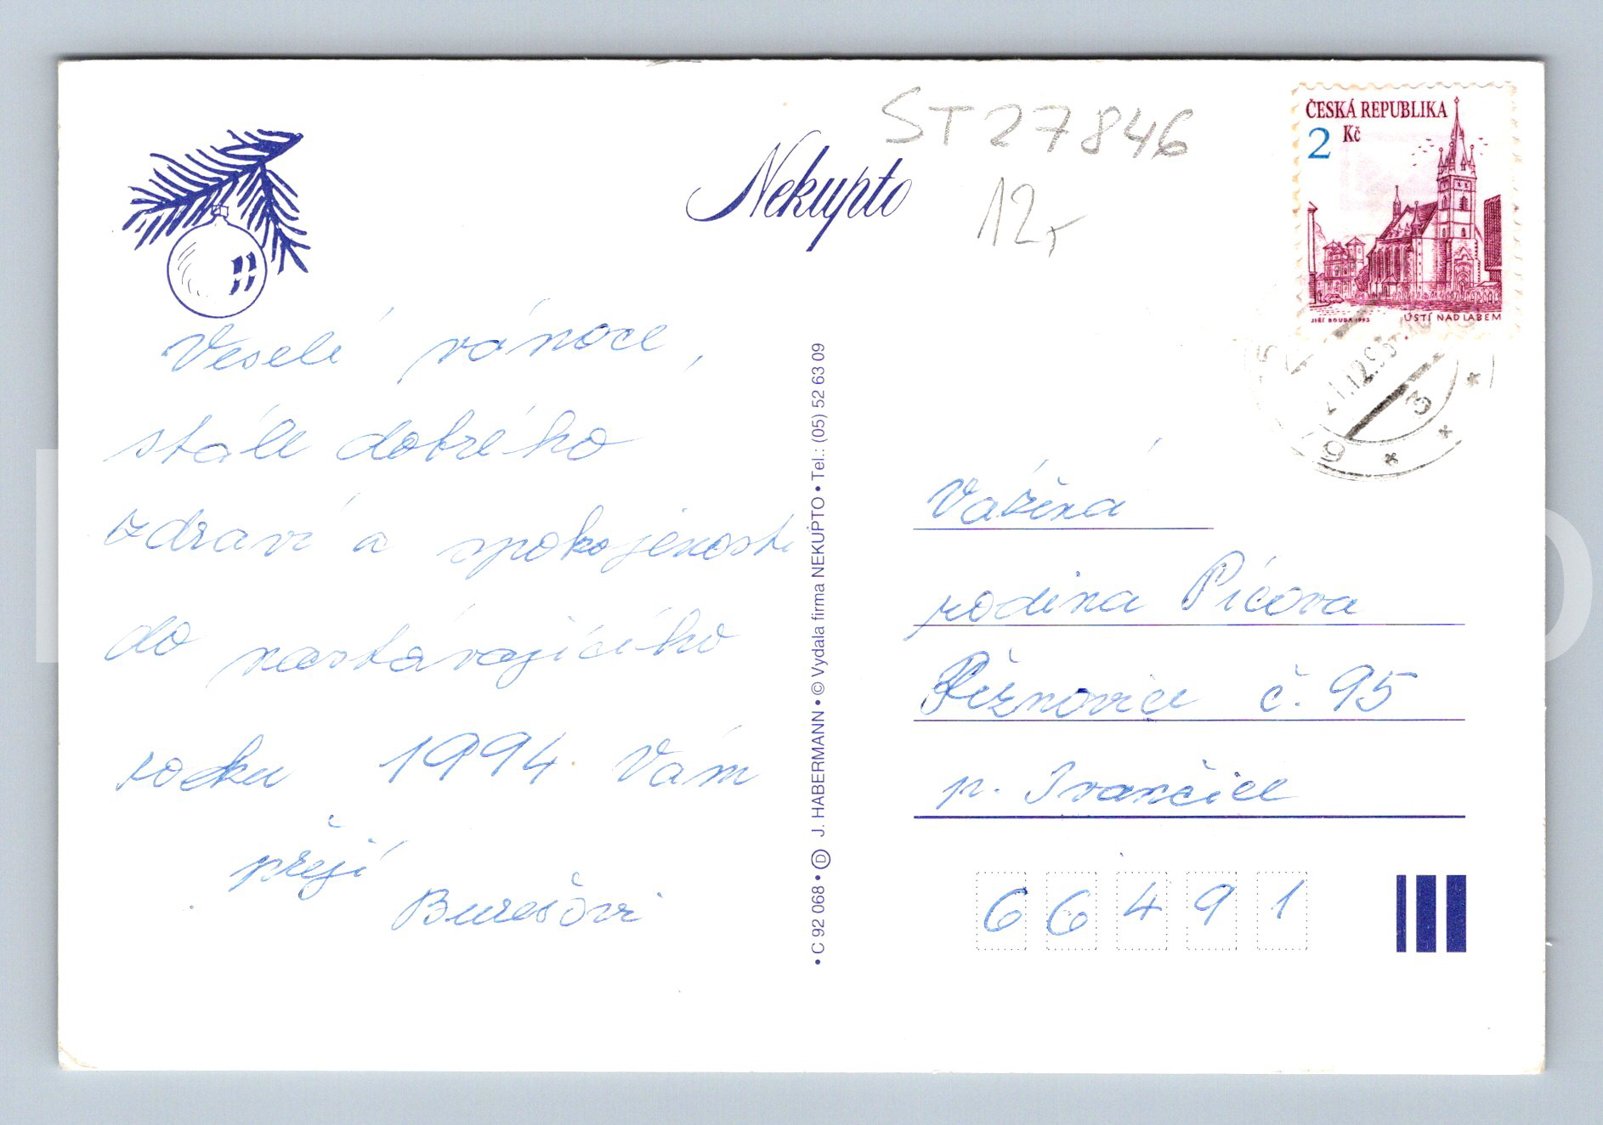 ST 27846
12,-
Nekupto
ČESKÁ REPUBLIKA
2 Kč
JIŘÍ BOUDA 1993
ÚSTÍ NAD LABEM
21.12.93
Veselé vánoce,
stálé dobrého
zdraví a spokojenosti
do nastávajícího
rocku 1994 Vám
přejí
Burešovi
• C 92 068 • D J. HABERMANN • © Vydala firma NEKUPTO • Tel.: (05) 52 63 09
Vážená
rodina Pícova
Řeznovice č. 95
p. Ivančice
66491